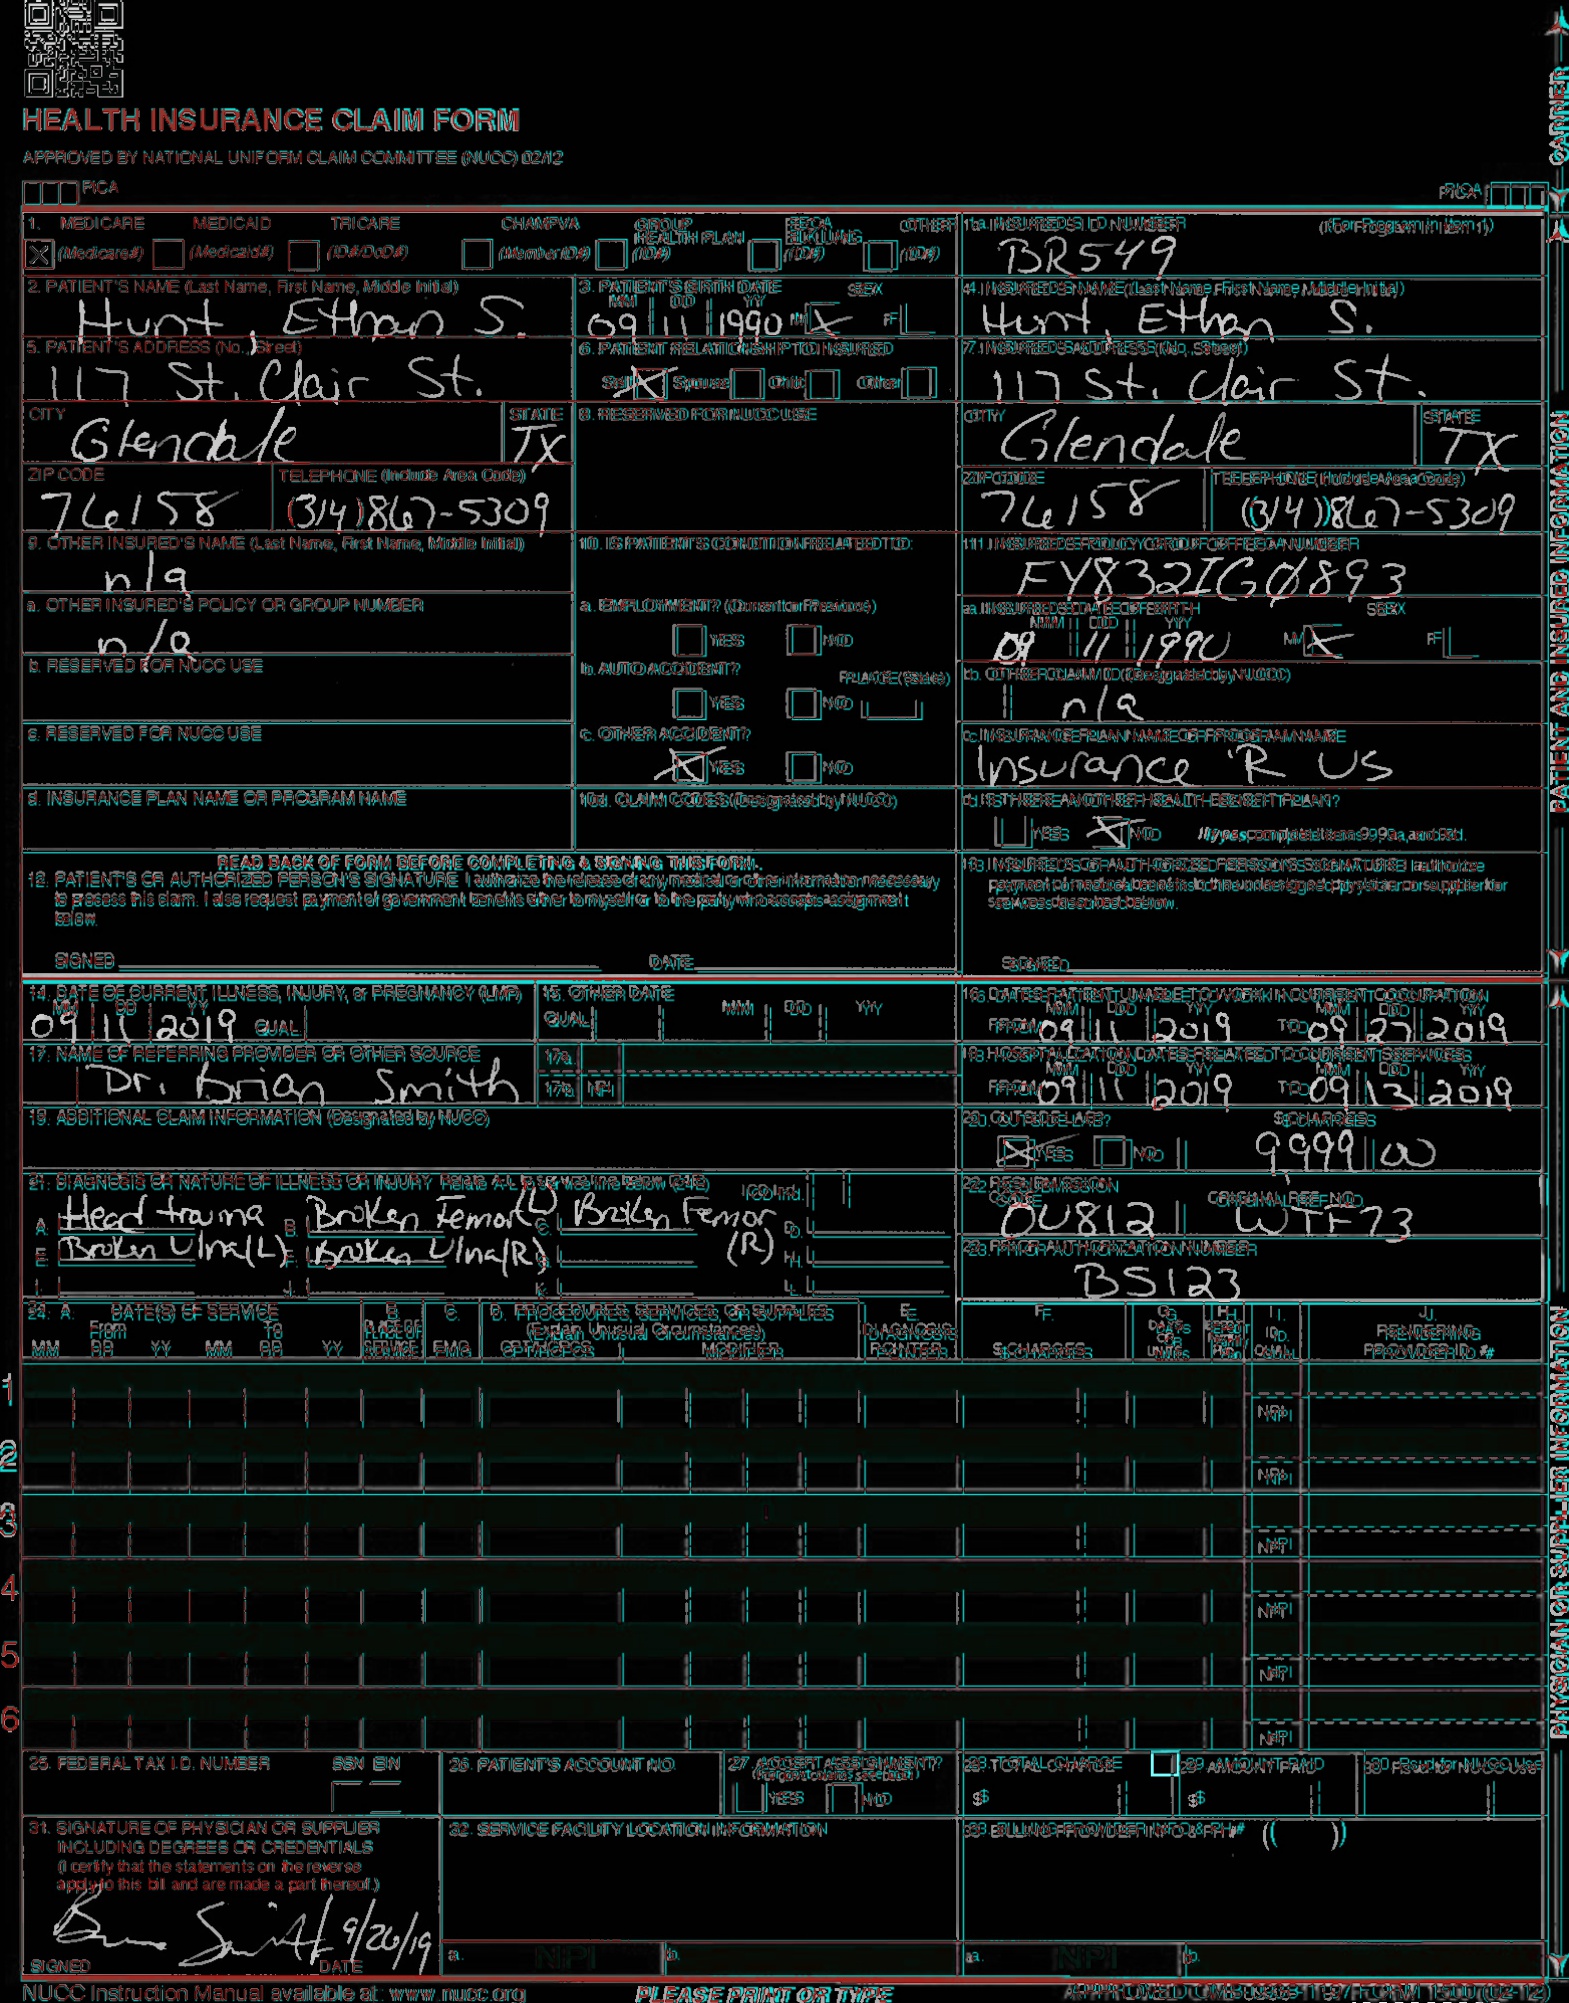 HEALTH INSURANCE CLAIM FORM
APPROVED BY NATIONAL UNIFORM CLAIM COMMITTEE (NUCC) 02/12
PICA
PICA
CARRIER
1. MEDICARE MEDICAID TRICARE CHAMPVA GROUP HEALTH PLAN FECA BLKLUNG OTHER
(Medicare#) (Medicaid#) (ID#/DoD#) (Member ID#) (ID#) (ID#) (ID#)
1a. INSURED'S I.D. NUMBER (For Program in Item 1)
BR549
2. PATIENT'S NAME (Last Name, First Name, Middle Initial)
Hunt, Ethan S.
3. PATIENT'S BIRTH DATE SEX
MM DD YY
09 11 1990 M X F
4. INSURED'S NAME (Last Name, First Name, Middle Initial)
Hunt, Ethan S.
5. PATIENT'S ADDRESS (No., Street)
117 St. Clair St.
6. PATIENT RELATIONSHIP TO INSURED
Self X Spouse Child Other
7. INSURED'S ADDRESS (No., Street)
117 St. Clair St.
CITY STATE
Glendale TX
8. RESERVED FOR NUCC USE
CITY STATE
Glendale TX
ZIP CODE TELEPHONE (Include Area Code)
76158 (314)867-5309
ZIP CODE TELEPHONE (Include Area Code)
76158 (314)867-5309
9. OTHER INSURED'S NAME (Last Name, First Name, Middle Initial)
n/a
10. IS PATIENT'S CONDITION RELATED TO:
11. INSURED'S POLICY GROUP OR FECA NUMBER
FY832IG0893
a. OTHER INSURED'S POLICY OR GROUP NUMBER
n/a
a. EMPLOYMENT? (Current or Previous)
YES NO
a. INSURED'S DATE OF BIRTH SEX
MM DD YY
09 11 1990 M X F
b. RESERVED FOR NUCC USE
b. AUTO ACCIDENT? PLACE (State)
YES NO
b. OTHER CLAIM ID (Designated by NUCC)
n/a
c. RESERVED FOR NUCC USE
c. OTHER ACCIDENT?
X YES NO
c. INSURANCE PLAN NAME OR PROGRAM NAME
Insurance 'R US
d. INSURANCE PLAN NAME OR PROGRAM NAME
10d. CLAIM CODES (Designated by NUCC)
d. IS THERE ANOTHER HEALTH BENEFIT PLAN?
YES X NO If yes, complete items 9, 9a, and 9d.
PATIENT AND INSURED INFORMATION
READ BACK OF FORM BEFORE COMPLETING & SIGNING THIS FORM.
12. PATIENT'S OR AUTHORIZED PERSON'S SIGNATURE I authorize the release of any medical or other information necessary
to process this claim. I also request payment of government benefits either to myself or to the party who accepts assignment
below.
SIGNED DATE
13. INSURED'S OR AUTHORIZED PERSON'S SIGNATURE I authorize
payment of medical benefits to the undersigned physician or supplier for
services described below.
SIGNED
14. DATE OF CURRENT ILLNESS, INJURY, or PREGNANCY (LMP)
MM DD YY
09 11 2019 QUAL.
15. OTHER DATE
QUAL. MM DD YY
16. DATES PATIENT UNABLE TO WORK IN CURRENT OCCUPATION
MM DD YY MM DD YY
FROM 09 11 2019 TO 09 27 2019
17. NAME OF REFERRING PROVIDER OR OTHER SOURCE
Dr. Brian Smith
17a.
17b. NPI
18. HOSPITALIZATION DATES RELATED TO CURRENT SERVICES
MM DD YY MM DD YY
FROM 09 11 2019 TO 09 13 2019
19. ADDITIONAL CLAIM INFORMATION (Designated by NUCC)
20. OUTSIDE LAB? $ CHARGES
X YES NO 9999 00
21. DIAGNOSIS OR NATURE OF ILLNESS OR INJURY Relate A-L to service line below (24E) ICD Ind.
A. Head trauma B. Broken Femor(L) C. Broken Femor (R) D.
E. Broken Ulna(L) F. Broken Ulna(R) G. H.
I. J. K. L.
22. RESUBMISSION CODE ORIGINAL REF. NO.
OU812 WTF73
23. PRIOR AUTHORIZATION NUMBER
BS123
24. A. DATE(S) OF SERVICE B. C. D. PROCEDURES, SERVICES, OR SUPPLIES E. F. G. H. I. J.
From To PLACE OF SERVICE EMG (Explain Unusual Circumstances) DIAGNOSIS POINTER $ CHARGES DAYS OR UNITS ID. QUAL. RENDERING PROVIDER ID. #
MM DD YY MM DD YY CPT/HCPCS MODIFIER
1 NPI
2 NPI
3 NPI
4 NPI
5 NPI
6 NPI
PHYSICIAN OR SUPPLIER INFORMATION
25. FEDERAL TAX I.D. NUMBER SSN EIN
26. PATIENT'S ACCOUNT NO.
27. ACCEPT ASSIGNMENT?
(For govt. claims, see back)
YES NO
28. TOTAL CHARGE
$
29. AMOUNT PAID
$
30. Rsvd for NUCC Use
31. SIGNATURE OF PHYSICIAN OR SUPPLIER
INCLUDING DEGREES OR CREDENTIALS
(I certify that the statements on the reverse
apply to this bill and are made a part thereof.)
9/26/19
SIGNED DATE
32. SERVICE FACILITY LOCATION INFORMATION
a. NPI b.
33. BILLING PROVIDER INFO & PH # ( )
a. NPI b.
NUCC Instruction Manual available at: www.nucc.org
PLEASE PRINT OR TYPE
APPROVED OMB-0938-1197 FORM 1500 (02-12)